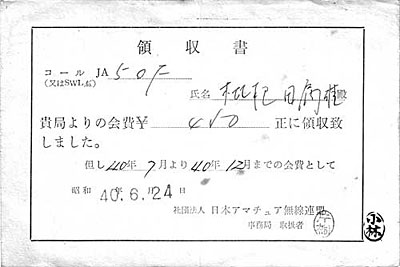 領収書
コール JA 5 0F
(又はSWL№)
氏名 田 殿
貴局よりの会費￥ 450 正に領収致
しました。
但し 40年 7月より 40年 12月までの会費として
昭和 40.年6.月24日
社団法人 日本アマチュア無線連盟
事務局 取扱者
小林